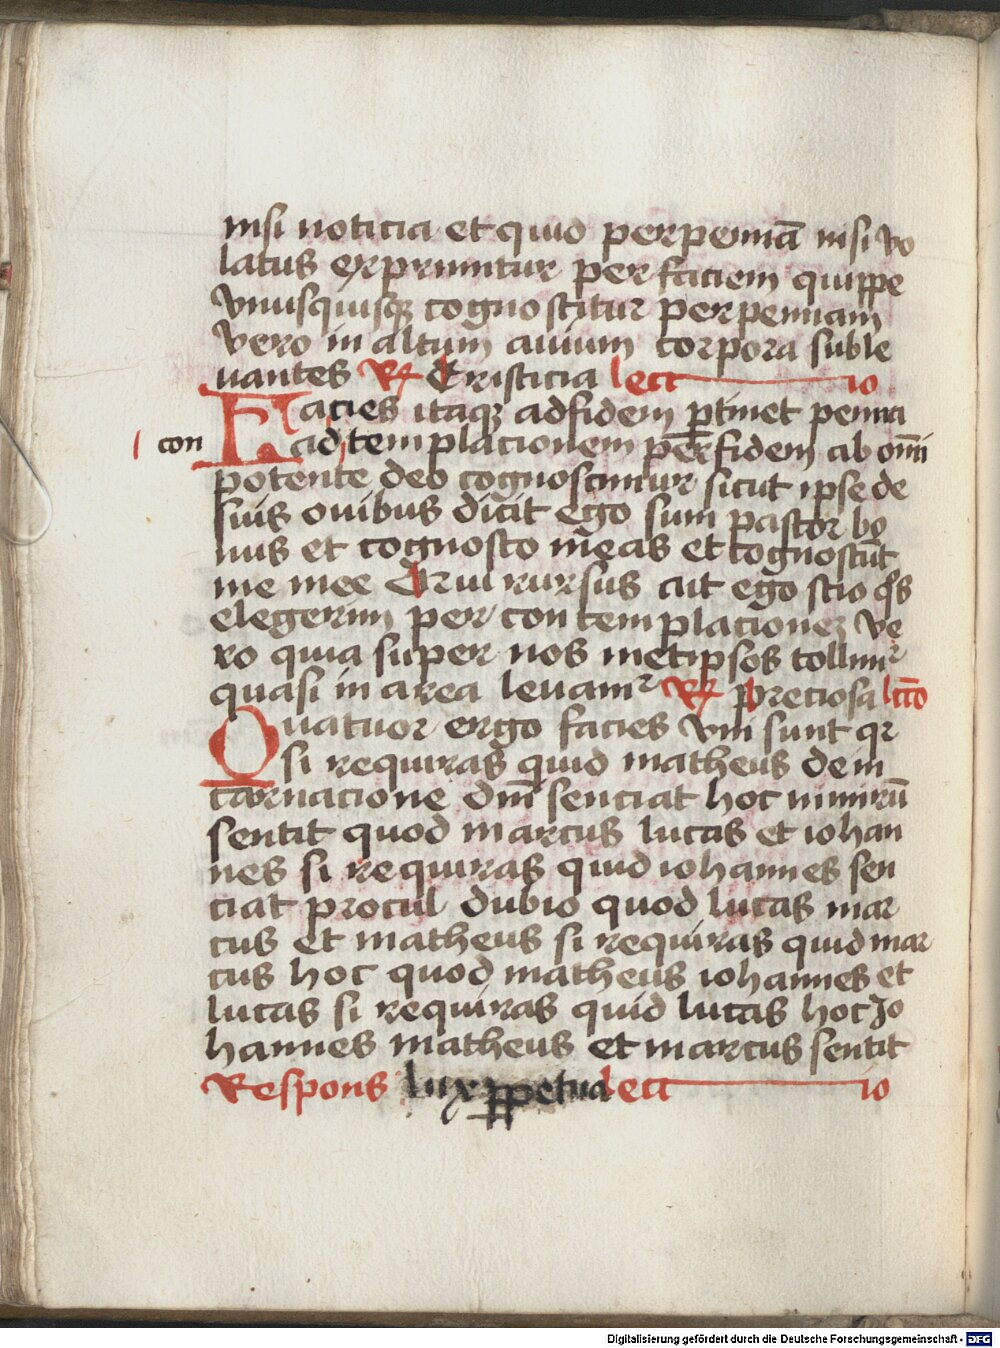 nisi noticia et quid per pennā nisi vo
latus exprimitur per faciem quippe
vnusquisqꝫ cognoscitur per pennam
vero in altum auium corpora suble
uantes ℟ Tristicia lectio
Facies itaqꝫ ad fidem ꝑtinet penna
con ad templacionem per fidem ab omī
potente deo cognoscimur sicut ipse de
suis ouibus dicit ego sum pastor bo
nus et cognosco meas et cognoscūt
me mee Qui rursus ait ego scio qͦs
elegerim per contemplacionez ve
ro qua super nos metipsos tollimr
quasi in area leuamr ℟ Preciosa lcc̄o
Quatuor ergo facies vni sunt qr
si requiras quid matheus de in
carnacione dm̄ senciat hoc nimirū
sentit quod marcus lucas et iohan
nes si requiras quid iohannes sen
ciat procul dubio quod lucas mar
cus et matheus si requiras quid mar
cus hoc quod matheus iohannes et
lucas si requiras quid lucas hoc Jo
hannes matheus et marcus sentit
Respons lux ꝑpetua lectio
Digitalisierung gefördert durch die Deutsche Forschungsgemeinschaft - DFG